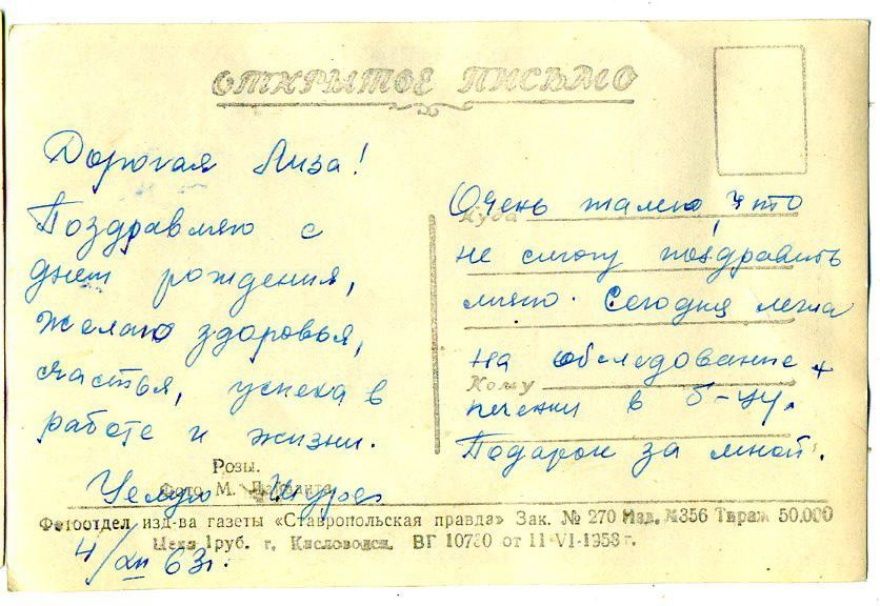 ОТКРЫТОЕ ПИСЬМО
Дорогая Лиза!
Поздравляю с
днем рождения,
желаю здоровья,
счастья, успеха в
работе и жизни.
Целую
4/XII 63г.
Куда
Очень жалею, что
не смогу поздравить
лично. Сегодня лежа
на обследование
Кому
печени в б-цу.
Подарок за мной.
Розы.
Фото М.
Фотоотдел изд-ва газеты «Ставропольская правда» Зак. № 270 Изд. №356 Тираж 50.000
Цена 1руб. г. Кисловодск. ВГ 10730 от 11-VI-1958 г.